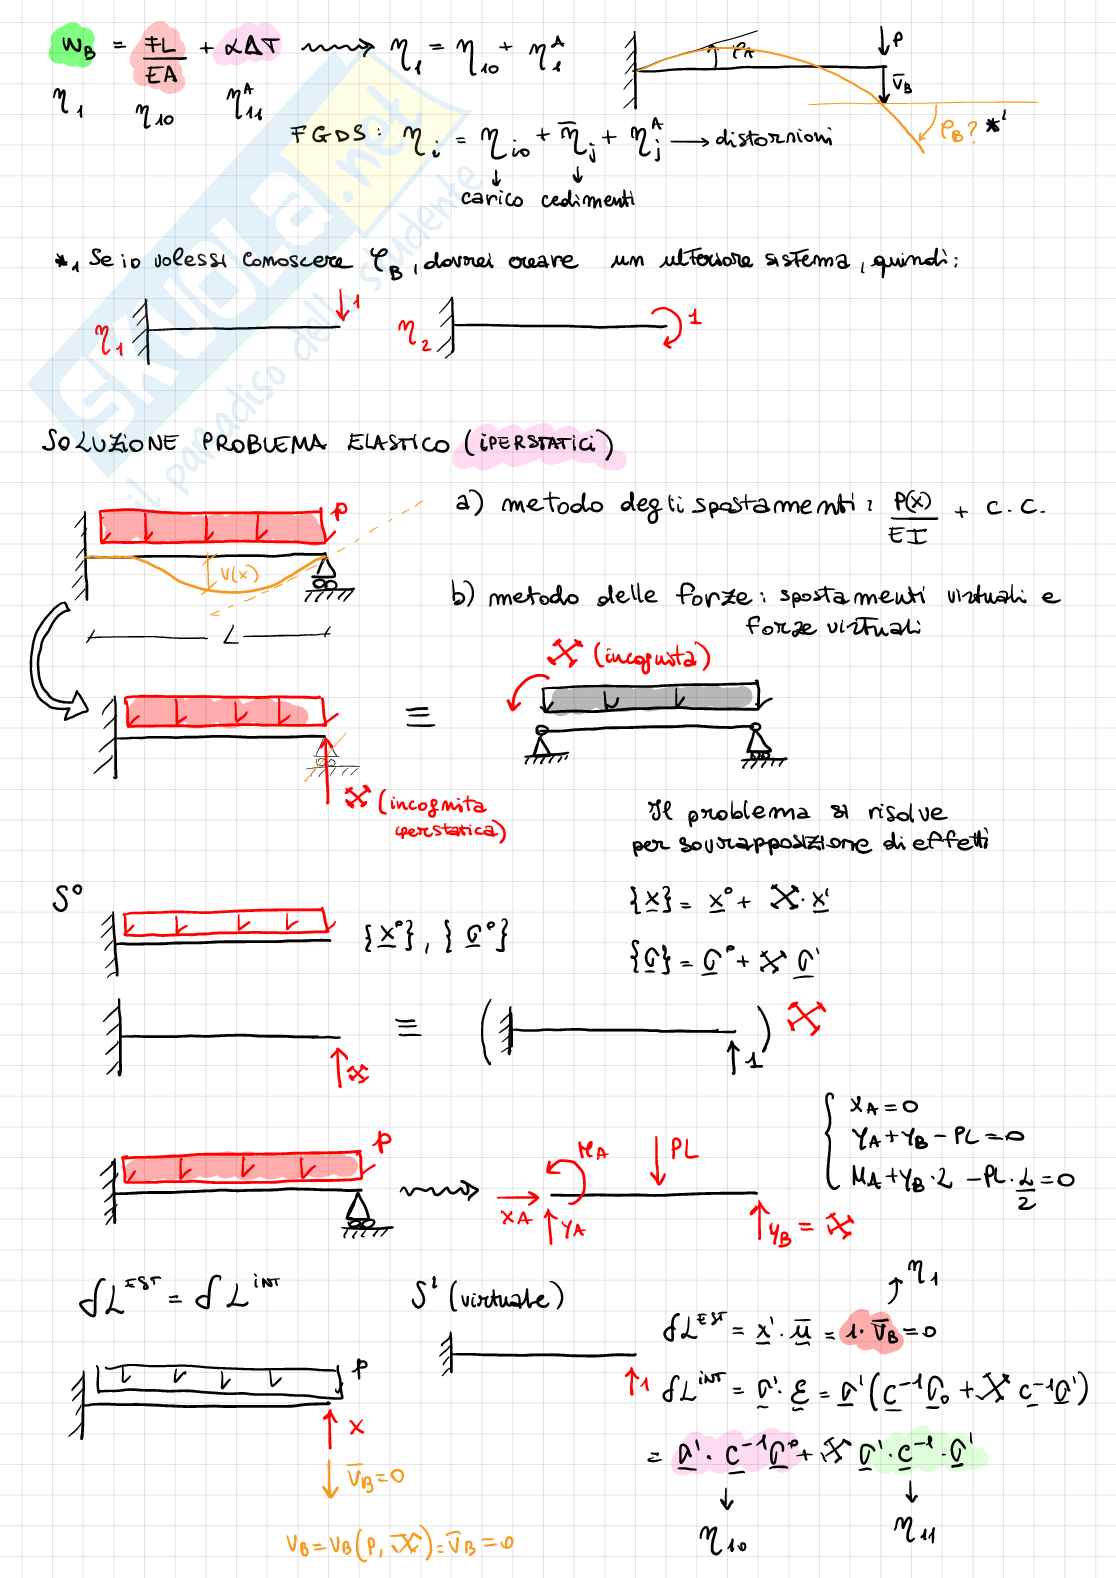 w_B = FL/EA + αΔT ⟿ η_1 = η_10 + η_1^Δ
η_1 η_10 η_11^Δ
φ_A P v̄_B φ_B? *1
FGDS: η_i = η_io + η̄_j + η_j^Δ → distorsioni
carico cedimenti
*1 Se io volessi conoscere φ_B, dovrei creare un ulteriore sistema, quindi:
η_1 1 η_2 1
SOLUZIONE PROBLEMA ELASTICO (iPERSTATICi)
a) metodo degli spostamenti: P(x)/EI + C.C.
P
v(x)
b) metodo delle forze: spostamenti virtuali e
forze virtuali
L
X (incognita)
≡
X (incognita
iperstatica)
Il problema si risolve
per sovrapposizione di effetti
S°
{x°}, {σ°}
{x} = x° + X · x'
{σ} = σ° + X σ'
X ≡ ( 1 ) X
P
M_A PL
X_A Y_A Y_B = X
X_A = 0
Y_A + Y_B - PL = 0
M_A + Y_B · L - PL · L/2 = 0
δL^EST = δL^INT
S¹ (virtuale)
η_1
δL^EST = x' · ū = 1 · v̄_B = 0
P
X
v̄_B = 0
1
δL^INT = σ' · ε = σ' (C^-1 σ_0 + X C^-1 σ')
= σ' · C^-1 σ° + X σ' · C^-1 · σ'
η_10 η_11
v_B = v_B (P, X) = v̄_B = 0
SKUOLA.net
il paradiso dello studente